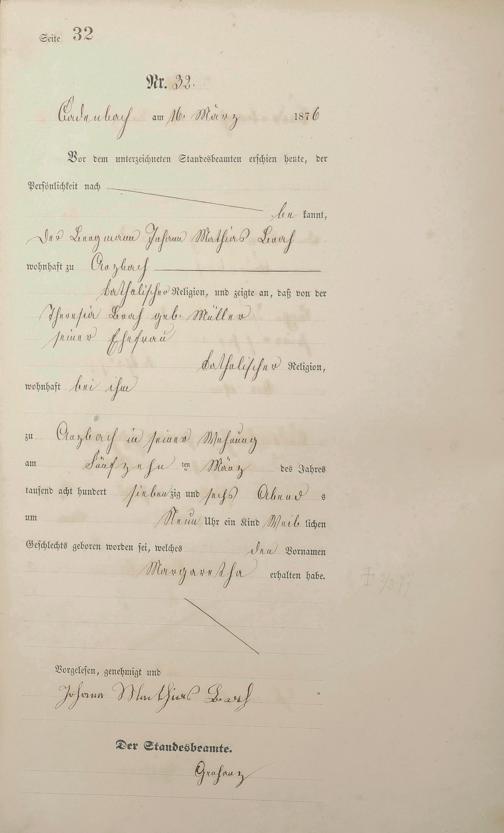 Seite 32
Nr. 32.
Cadenbach am 16. März 1876
Vor dem unterzeichneten Standesbeamten erschien heute, der
Persönlichkeit nach
be kannt,
der Bergmann Johann Mathias Bach
wohnhaft zu Arzbach
katholischer Religion, und zeigte an, daß von der
Theresia Bach geb. Müller
seiner Ehefrau
katholischer Religion,
wohnhaft bei ihm
zu Arzbach in seiner Wohnung
am fünfzehn ten März des Jahres
tausend acht hundert siebenzig und sechs Abend s
um Neun Uhr ein Kind Weib lichen
Geschlechts geboren worden sei, welches den Vornamen
Margaretha erhalten habe.
Vorgelesen, genehmigt und
Johann Mathias Bach
Der Standesbeamte.